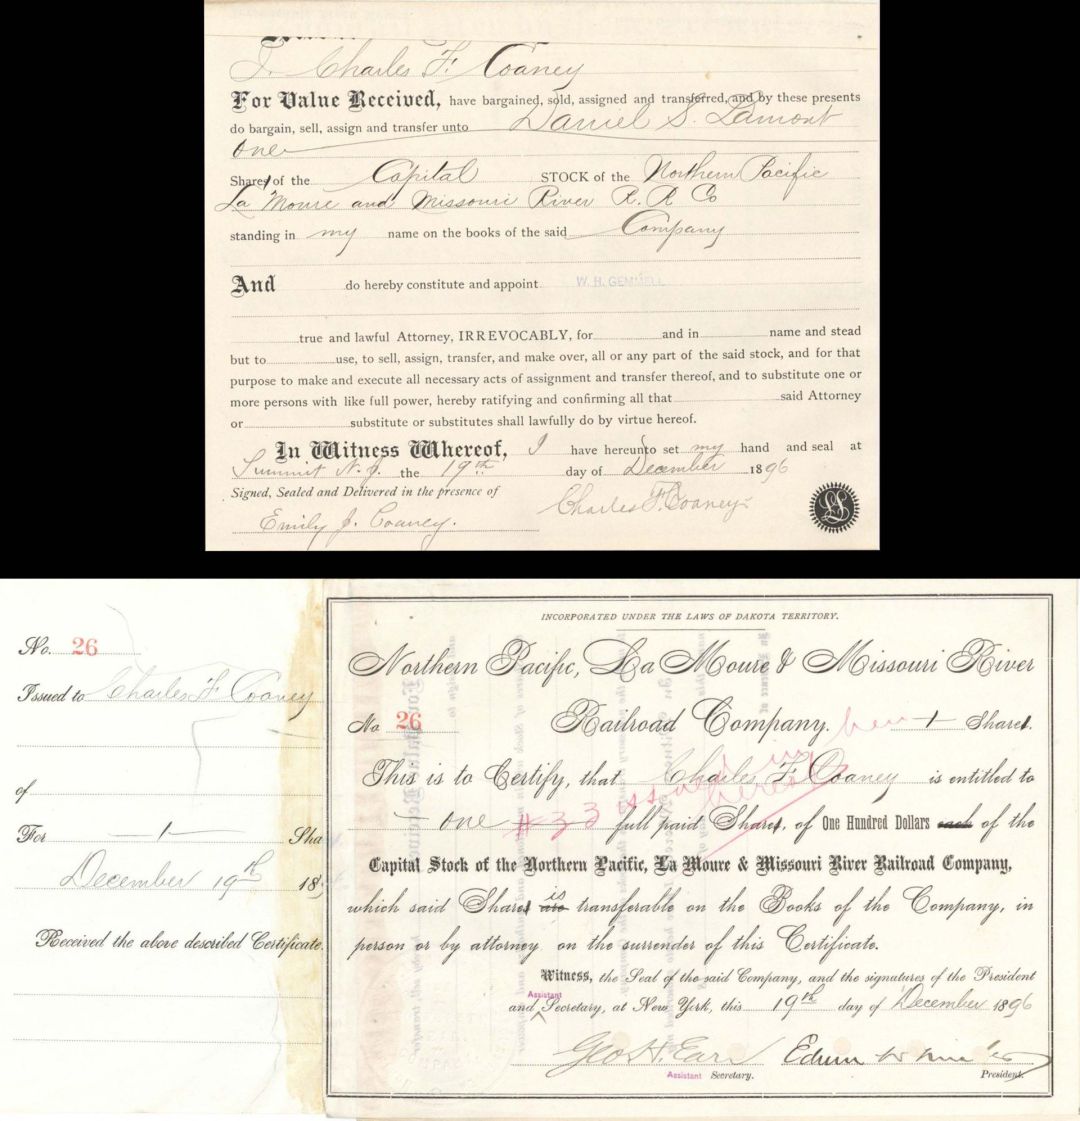 I. Charles F. Coaney
For Value Received, have bargained, sold, assigned and transferred, and by these presents
do bargain, sell, assign and transfer unto Daniel S. Lamont
one
Share of the Capital STOCK of the Northern Pacific
La Moure and Missouri River R. R Co
standing in my name on the books of the said Company
And do hereby constitute and appoint W. H. GEMMELL
true and lawful Attorney, IRREVOCABLY, for and in name and stead
but to use, to sell, assign, transfer, and make over, all or any part of the said stock, and for that
purpose to make and execute all necessary acts of assignment and transfer thereof, and to substitute one or
more persons with like full power, hereby ratifying and confirming all that said Attorney
or substitute or substitutes shall lawfully do by virtue hereof.
In Witness Whereof, I have hereunto set my hand and seal at
Summit N. J. the 19th day of December 1896
Signed, Sealed and Delivered in the presence of
Charles F. Coaney
Emily J. Coaney.
LS
No. 26
Issued to Charles F Coaney
of
For 1 Sha
December 19th 18
Received the above described Certificate.
INCORPORATED UNDER THE LAWS OF DAKOTA TERRITORY.
Northern Pacific, La Moure & Missouri River
No 26 Railroad Company. 1 Share.
This is to Certify, that Charles F. Coaney is entitled to
one #33 issued full paid Share, of One Hundred Dollars each of the
Capital Stock of the Northern Pacific, La Moure & Missouri River Railroad Company,
which said Share are is transferable on the Books of the Company, in
person or by attorney on the surrender of this Certificate.
Witness, the Seal of the said Company, and the signatures of the President
and Assistant Secretary, at New York, this 19th day of December 1896
Geo. H. Earl Edwin W
Assistant Secretary. President.